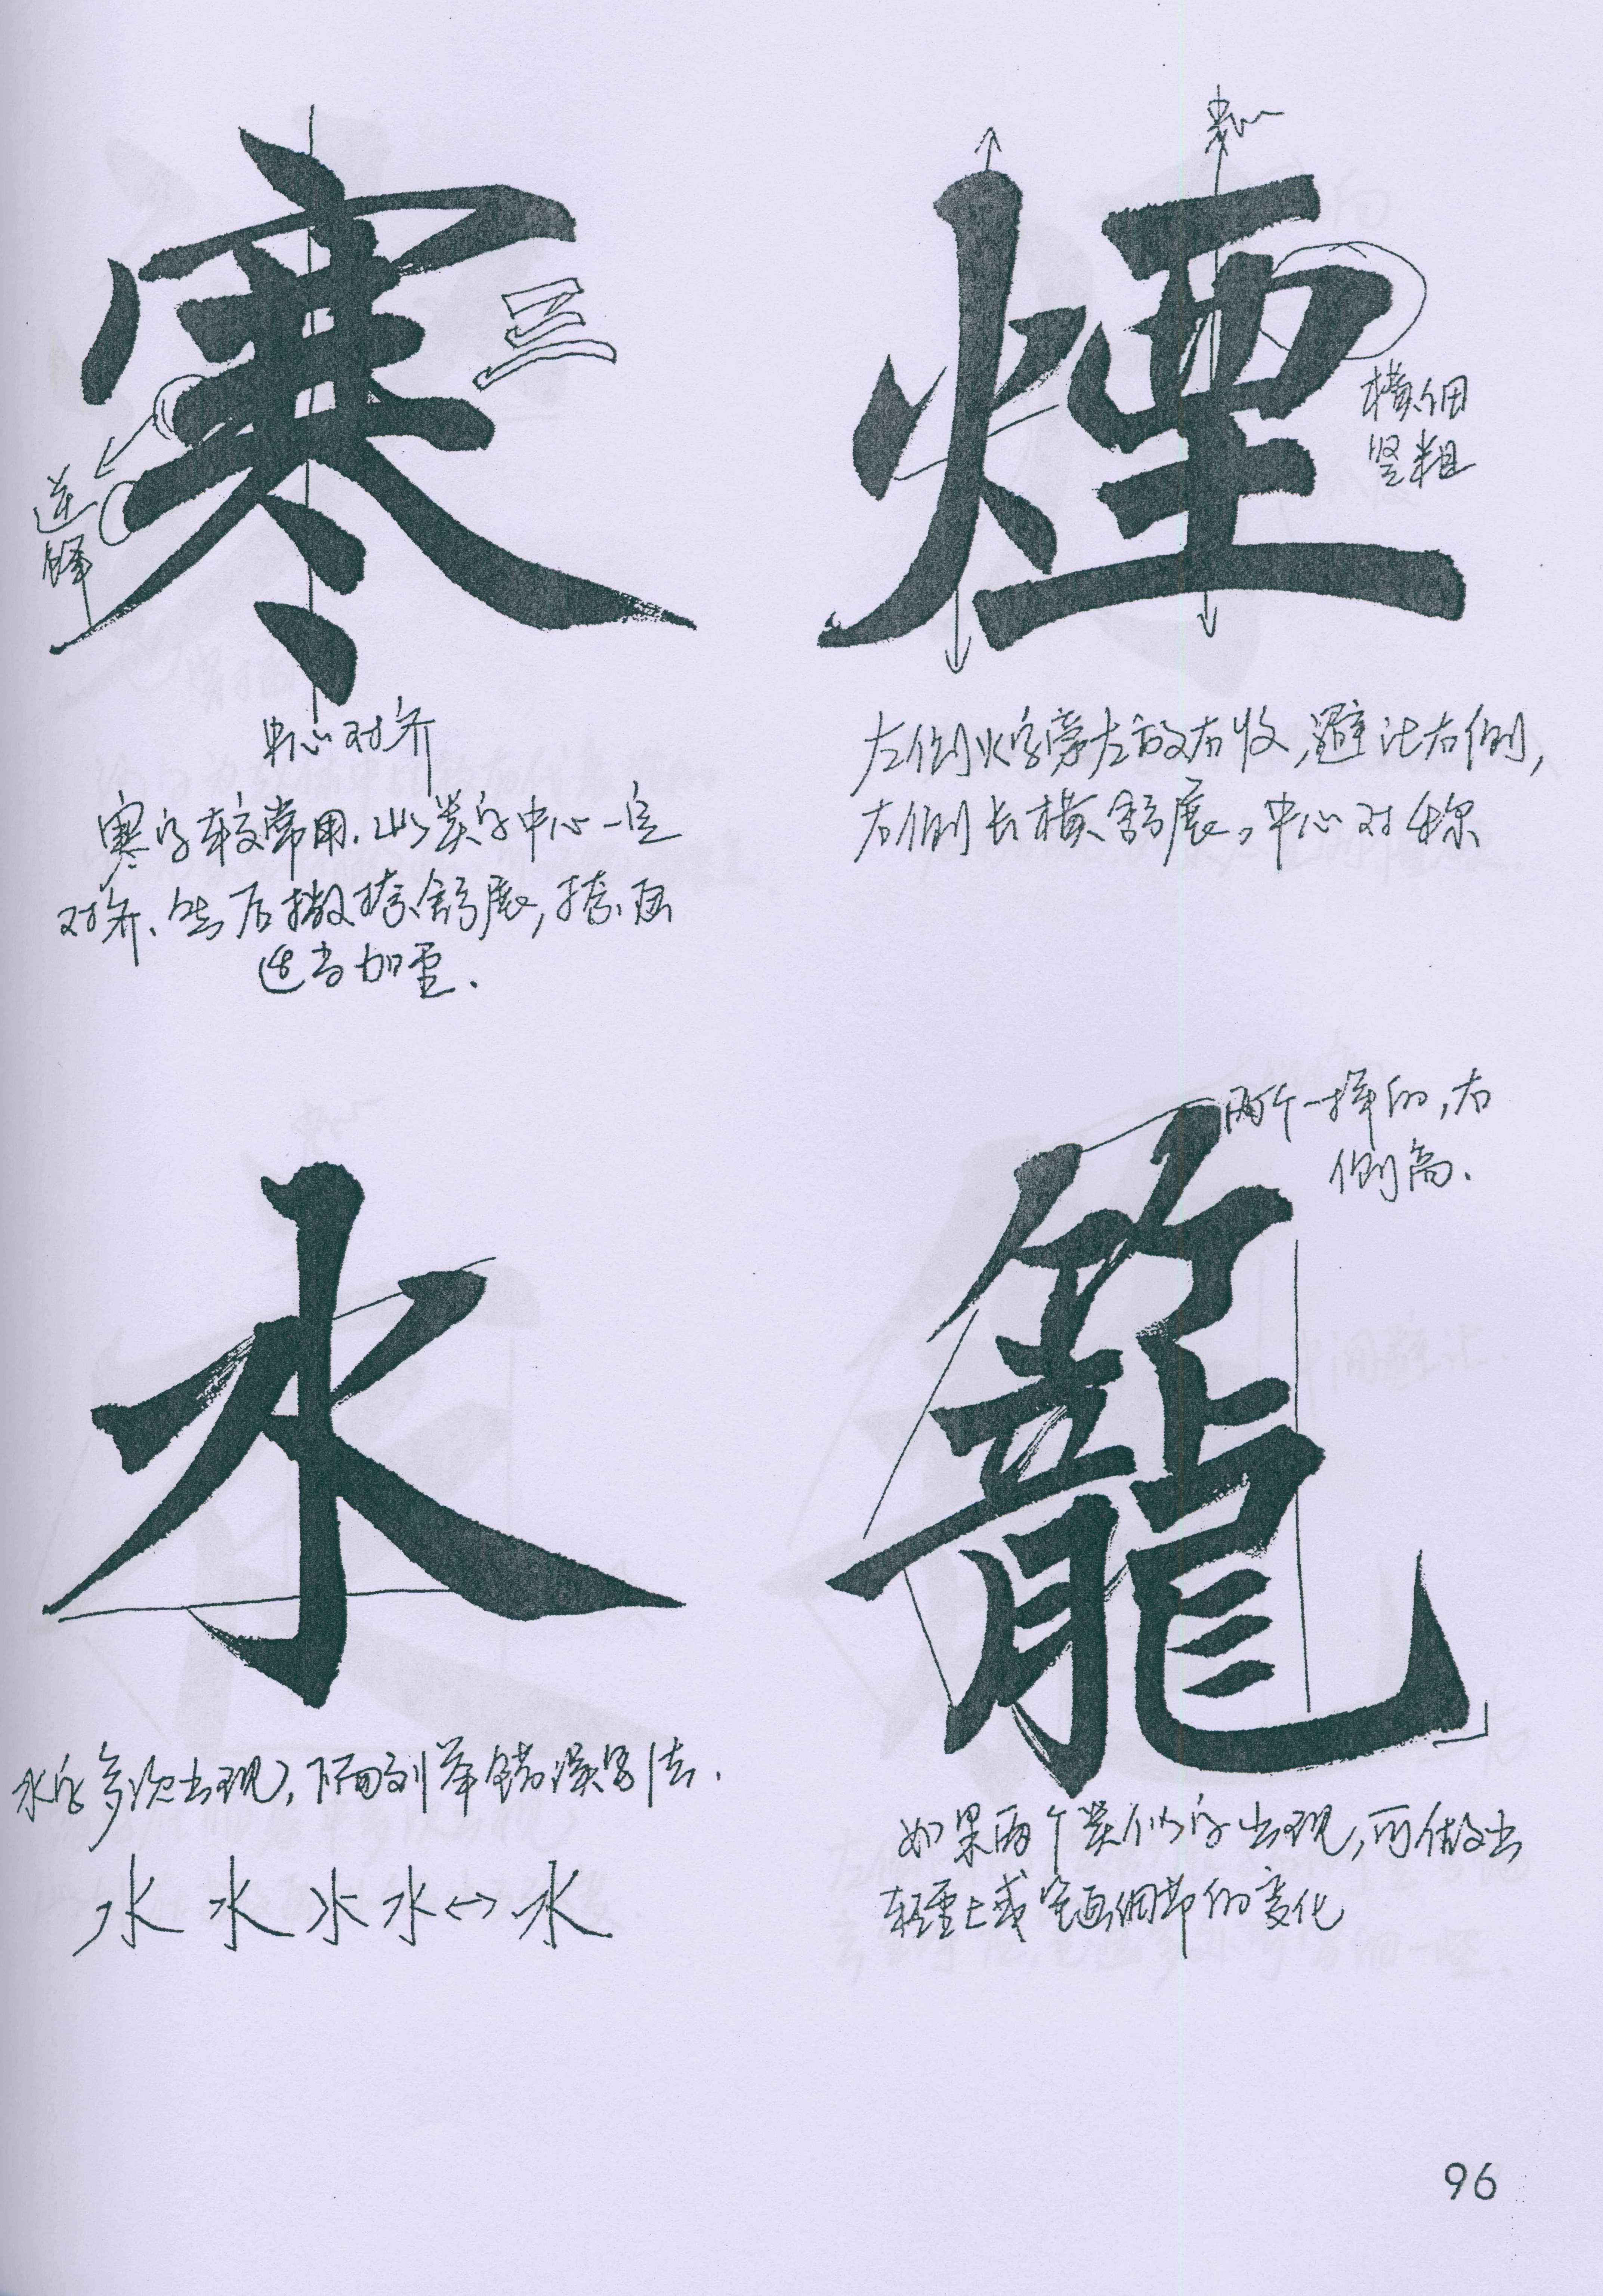 寒
三
逆
锋
中心对齐
寒字较常用.此类字中心一定
对齐、然后撇捺舒展,捺画
适当加重.
中心
煙
横细
竖粗
左侧火字旁左放右收,避让右侧,
右侧长横舒展。中心对称
水
水字多次出现,下面列举错误写法.
水 水 水 水↔水
两个一样的,右
侧高.
籠
如果两个类似字出现,可做出
轻重上或笔画细节的变化
96